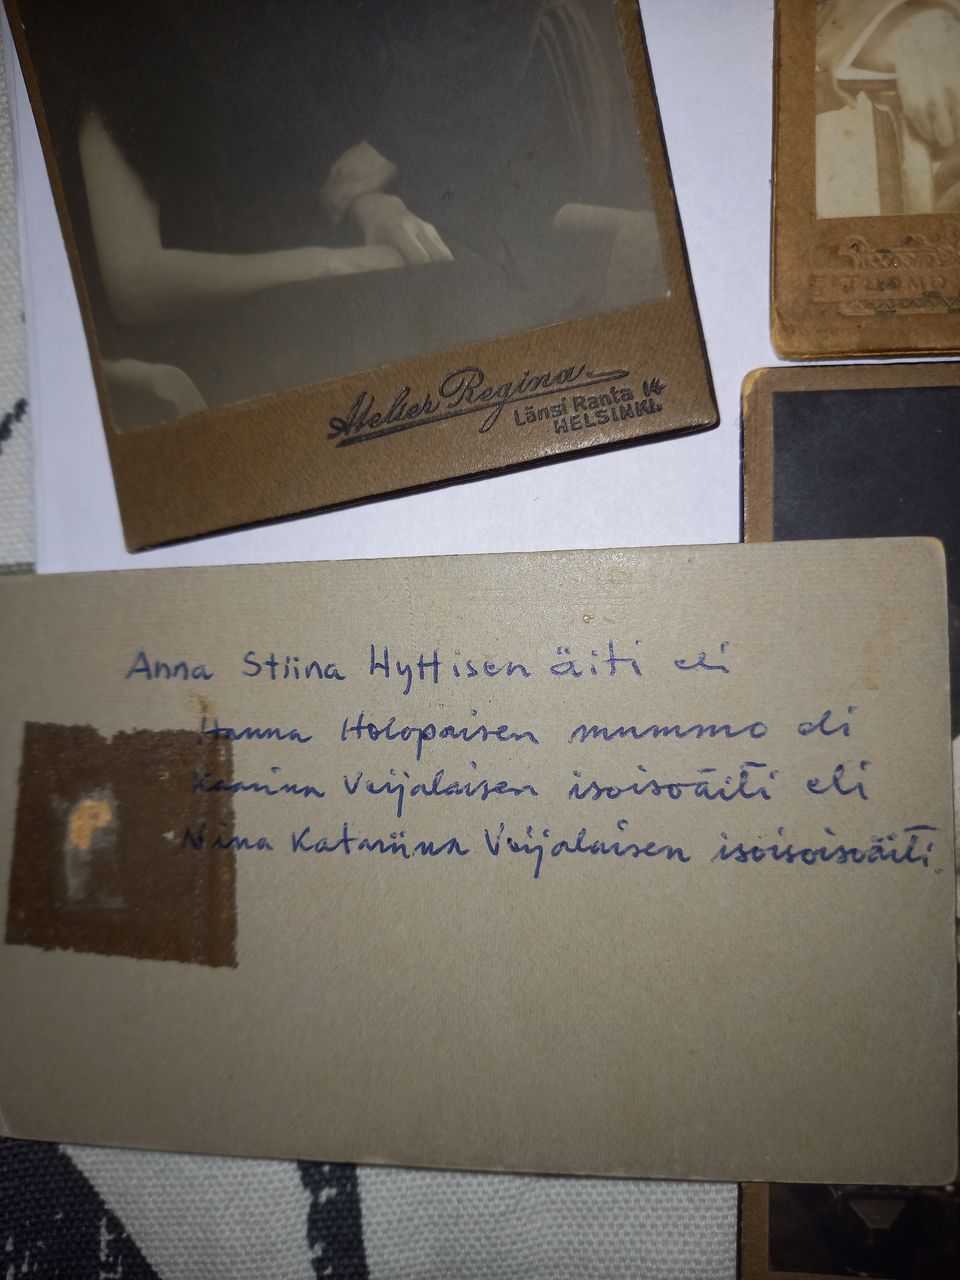 Atelier Regina
Länsi Ranta 14
HELSINKI.
Anna Stiina Hyttisen äiti eli
Hanna Holopaisen mummo eli
Kaarina Veijalaisen isoisoäiti eli
Nina Katariina Veijalaisen isoisoisoäiti.